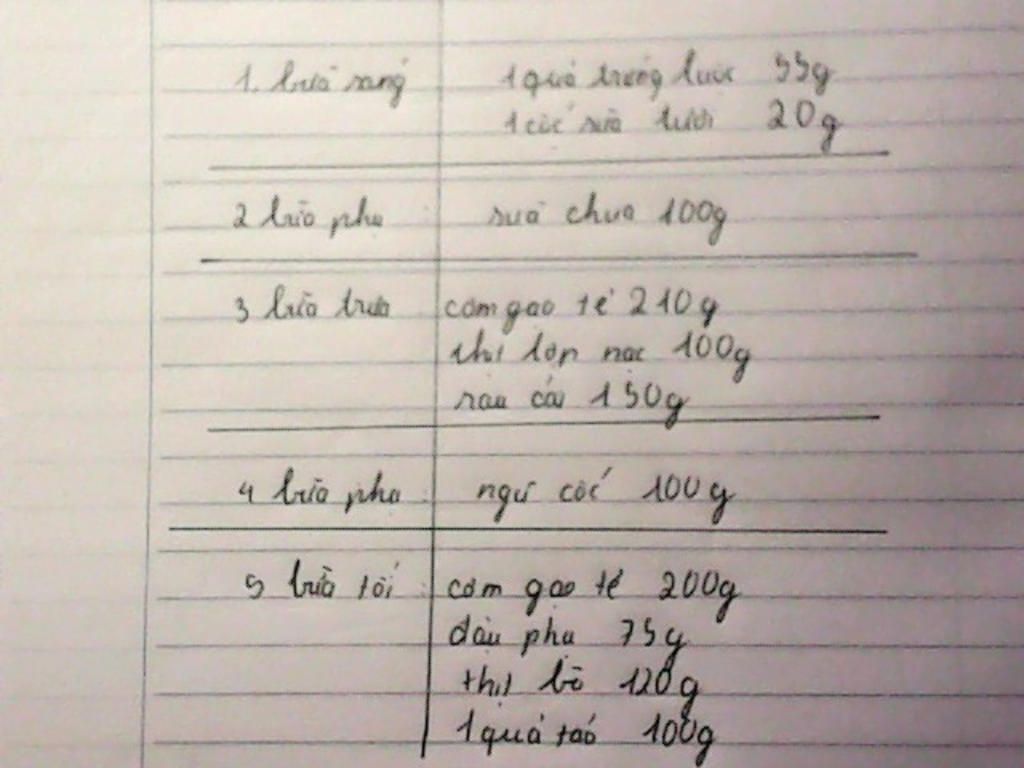 1. bữa sáng 1 quả trứng luộc 55g
1 cốc sữa tươi 20g
2 bữa phụ : sữa chua 100g
3 bữa trưa cơm gạo tẻ 210g
thịt lợn nạc 100g
rau cải 150g
4 bữa phụ : ngũ cốc 100g
5 bữa tối : cơm gạo tẻ 200g
đậu phụ 75g
thịt bò 120g
1 quả táo 100g